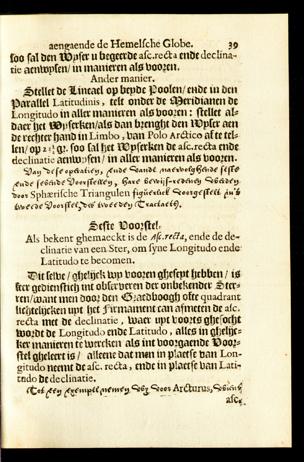 aengaende de Hemelsche Globe. 39
soo sal den Wyser u begeerde asc.recta ende declina-
tie aenwysen/ in manieren als vooren.
Ander manier.
Stellet de Lineael op beyde Poolen/ ende in den
Parallel Latitudinis, telt onder de Meridianen de
Longitudo in aller manieren als vooren : stellet al-
daer het Wyserken/als dan brenght den Wyser aen
de rechter handt in Limbo, van Polo Arctico af te tel-
len/ op gr. soo sal het Wyserken de asc.recta ende
declinatie aenwysen/ in aller manieren als vooren.
Van dese operatien, ende vande naervolghende seste
ende sevende Voorstellen, hare bewijs-redenen worden
door Sphærische Triangulen figuerlick voorgestelt in't
tweede Voorstel, der tweeden Tractaets.
Seste Voorstel.
Als bekent ghemaeckt is de asc.recta, ende de de-
clinatie van een Ster, om syne Longitudo ende
Latitudo te becomen.
Dit selve / ghelijck wy vooren gheseyt hebben / is
seer gedienstich int observeren der onbekender Ster-
ren/want men door den Graedboogh ofte quadrant
lichtelijcken uyt het Firmament can afmeten de asc.
recta met de declinatie, waer uyt voorts ghesocht
wordt de Longitudo ende Latitudo, alles in ghelijc-
ker manieren te wercken als int voorgaende Voor-
stel gheleert is / alleene dat men in plaetse van Lon-
gitudo neemt de asc. recta, ende in plaetse van Lati-
tudo de declinatie.
Tot een exempel nemen wy voor Arcturus,
asc.